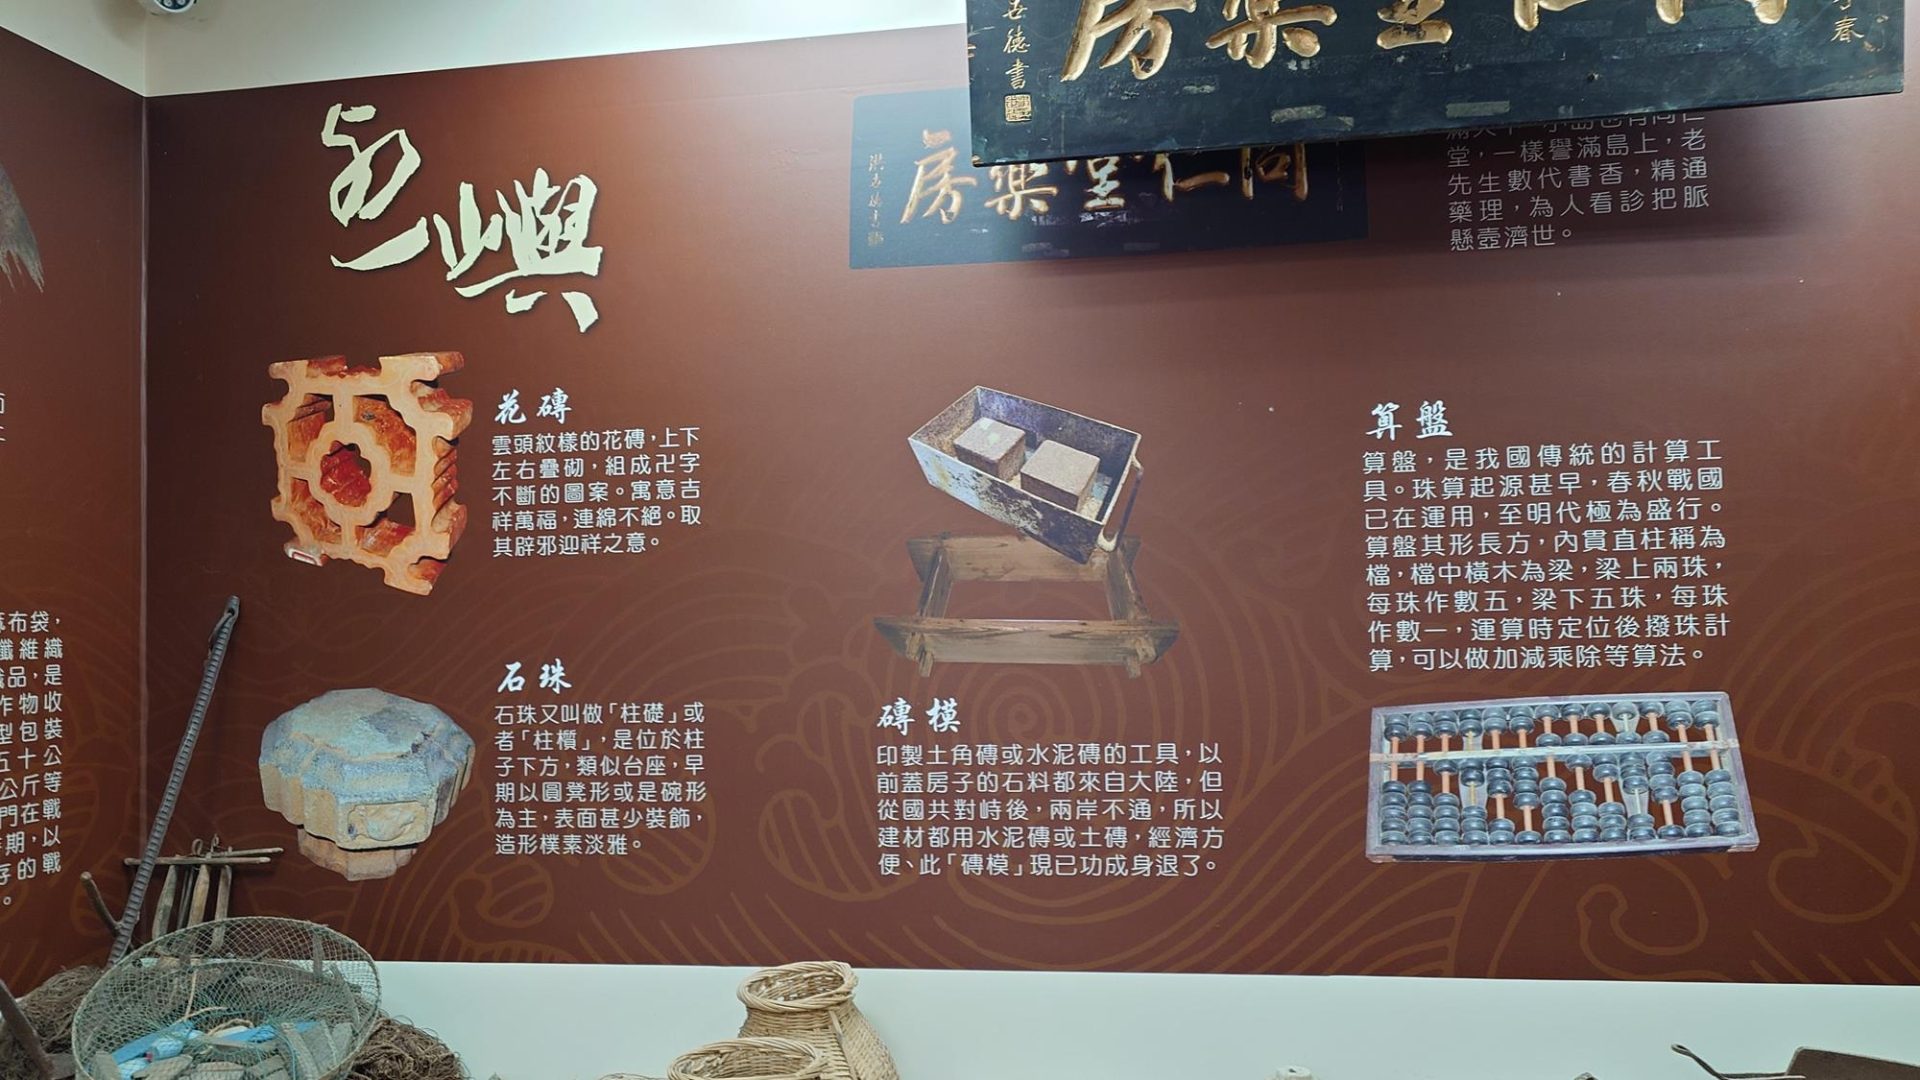 烈嶼
同仁堂藥房
志德書
房藥堂仁同
洪志德書
堂，一樣譽滿島上，老
先生數代書香，精通
藥理，為人看診把脈
懸壺濟世。
花磚
雲頭紋樣的花磚，上下
左右疊砌，組成卍字
不斷的圖案。寓意吉
祥萬福，連綿不絕。取
其辟邪迎祥之意。
石珠
石珠又叫做「柱礎」或
者「柱櫍」，是位於柱
子下方，類似台座，早
期以圓凳形或是碗形
為主，表面甚少裝飾，
造形樸素淡雅。
磚模
印製土角磚或水泥磚的工具，以
前蓋房子的石料都來自大陸，但
從國共對峙後，兩岸不通，所以
建材都用水泥磚或土磚，經濟方
便、此「磚模」現已功成身退了。
算盤
算盤，是我國傳統的計算工
具。珠算起源甚早，春秋戰國
已在運用，至明代極為盛行。
算盤其形長方，內貫直柱稱為
檔，檔中橫木為梁，梁上兩珠，
每珠作數五，梁下五珠，每珠
作數一，運算時定位後撥珠計
算，可以做加減乘除等算法。
布袋，
纖維織
品，是
作物收
型包裝
五十公
公斤等
門在戰
期，以
存的戰
。